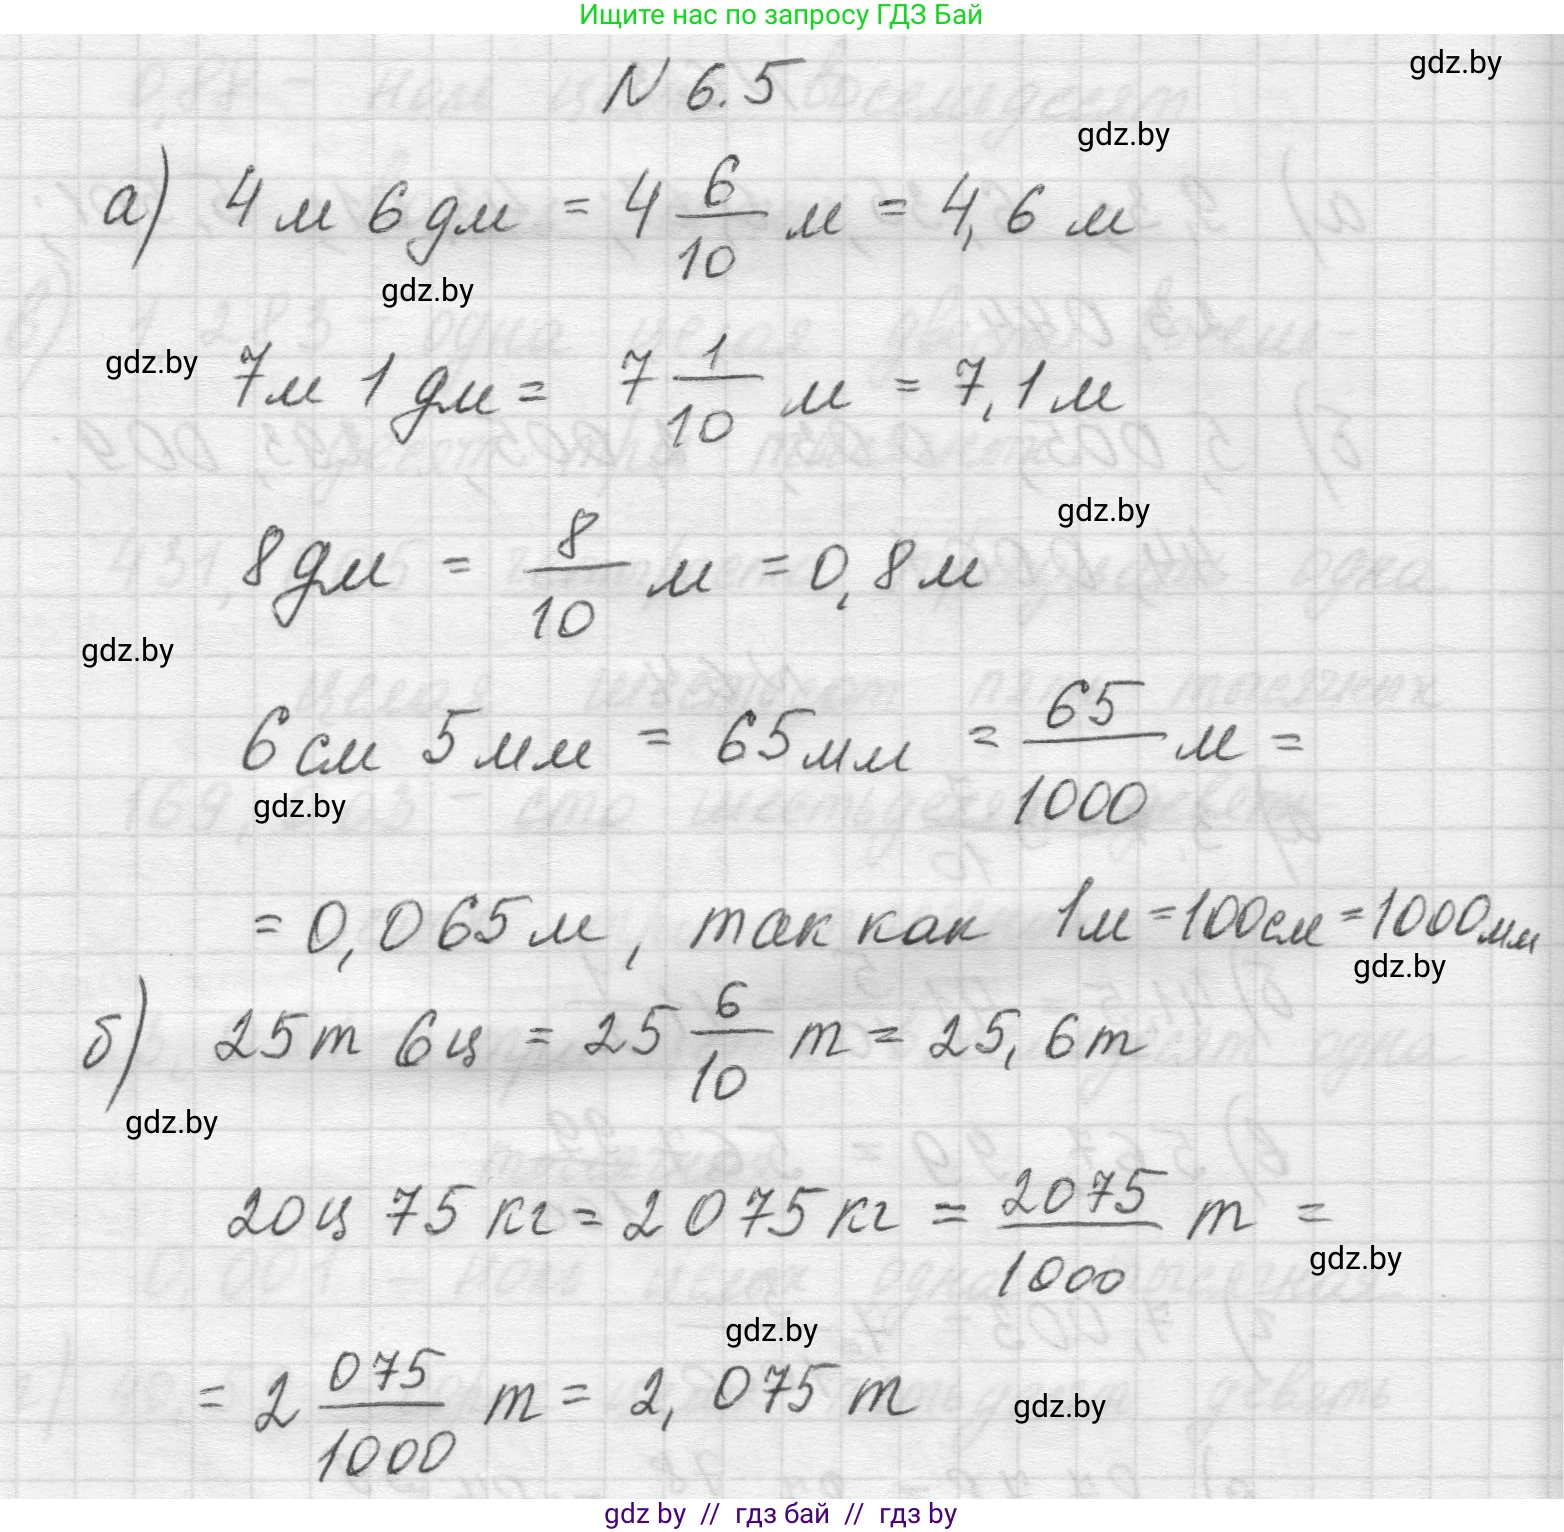 Ищите нас по запросу ГДЗ Бай
N 6.5
gdz.by
gdz.by
а) 4 м 6 дм = 4 6/10 м = 4,6 м
gdz.by
gdz.by
7м 1 дм = 7 1/10 м = 7,1 м
gdz.by
8 дм = 8/10 м = 0,8 м
gdz.by
6 см 5 мм = 65 мм = 65/1000 м =
gdz.by
= 0,065 м, так как 1м = 100см = 1000мм
gdz.by
б) 25 т 6 ц = 25 6/10 т = 25,6 т
gdz.by
20 ц 75 кг = 2075 кг = 2075/1000 т =
gdz.by
gdz.by
= 2 075/1000 т = 2,075 т
gdz.by
gdz by // гдз бай // гдз by